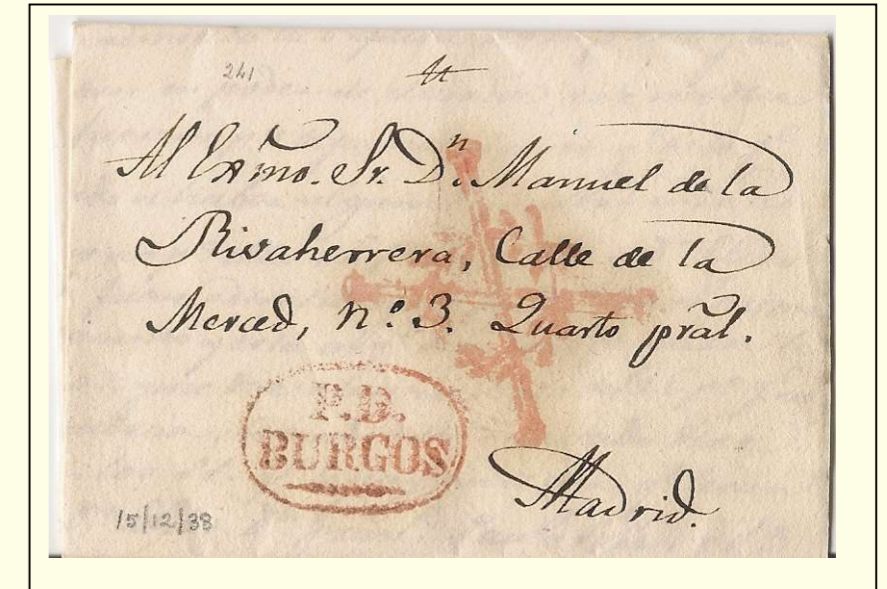 241
Al Exm̃o. Sr. Dⁿ. Manuel de la
Rivaherrera, Calle de la
Merced, nº. 3. Quarto pr̃al.
P.D.
BURGOS
Madrid.
15/12/38